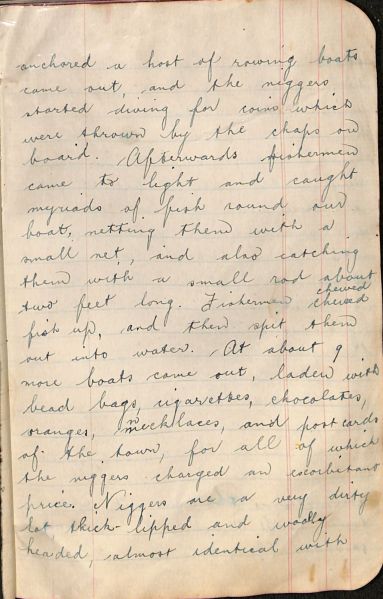 anchored a host of rowing boats
came out, and the niggers
started diving for coins which
were thrown by the chaps on
board. Afterwards fishermen
came to light and caught
myriads of fish round our
boat, netting them with a
small net, and also catching
them with a small rod about
two feet long. Fishermen chewed chewed
fish up, and then spit them
out into water. At about 9
more boats came out, laden with
bead bags, cigarettes, chocolates,
oranges, necklaces, and postcards
of the town, for all of which
the niggers charged an exorbitant
price. Niggers are a very dirty
lot thick-lipped and woolly
headed, almost identical with